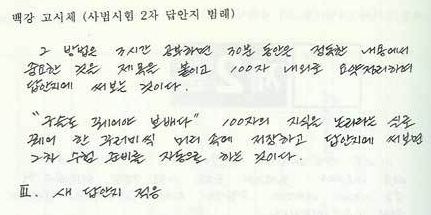 백강 고시체 (사법시험 2차 답안지 범례)
그 방법은 3시간 공부하면 30분 동안은 정독한 내용에서
중요한 것은 제목을 붙이고 100자 내외로 요약정리하여
답안지에 써보는 것이다.
"구슬도 꿰어야 보배다" 100자의 지식을 논리라는 실로
꿰어 한 꾸러미씩 머리 속에 저장하고 답안지에 써보면
2차 수험 준비를 자동으로 하는 것이다.
Ⅲ. 새 답안지 적응